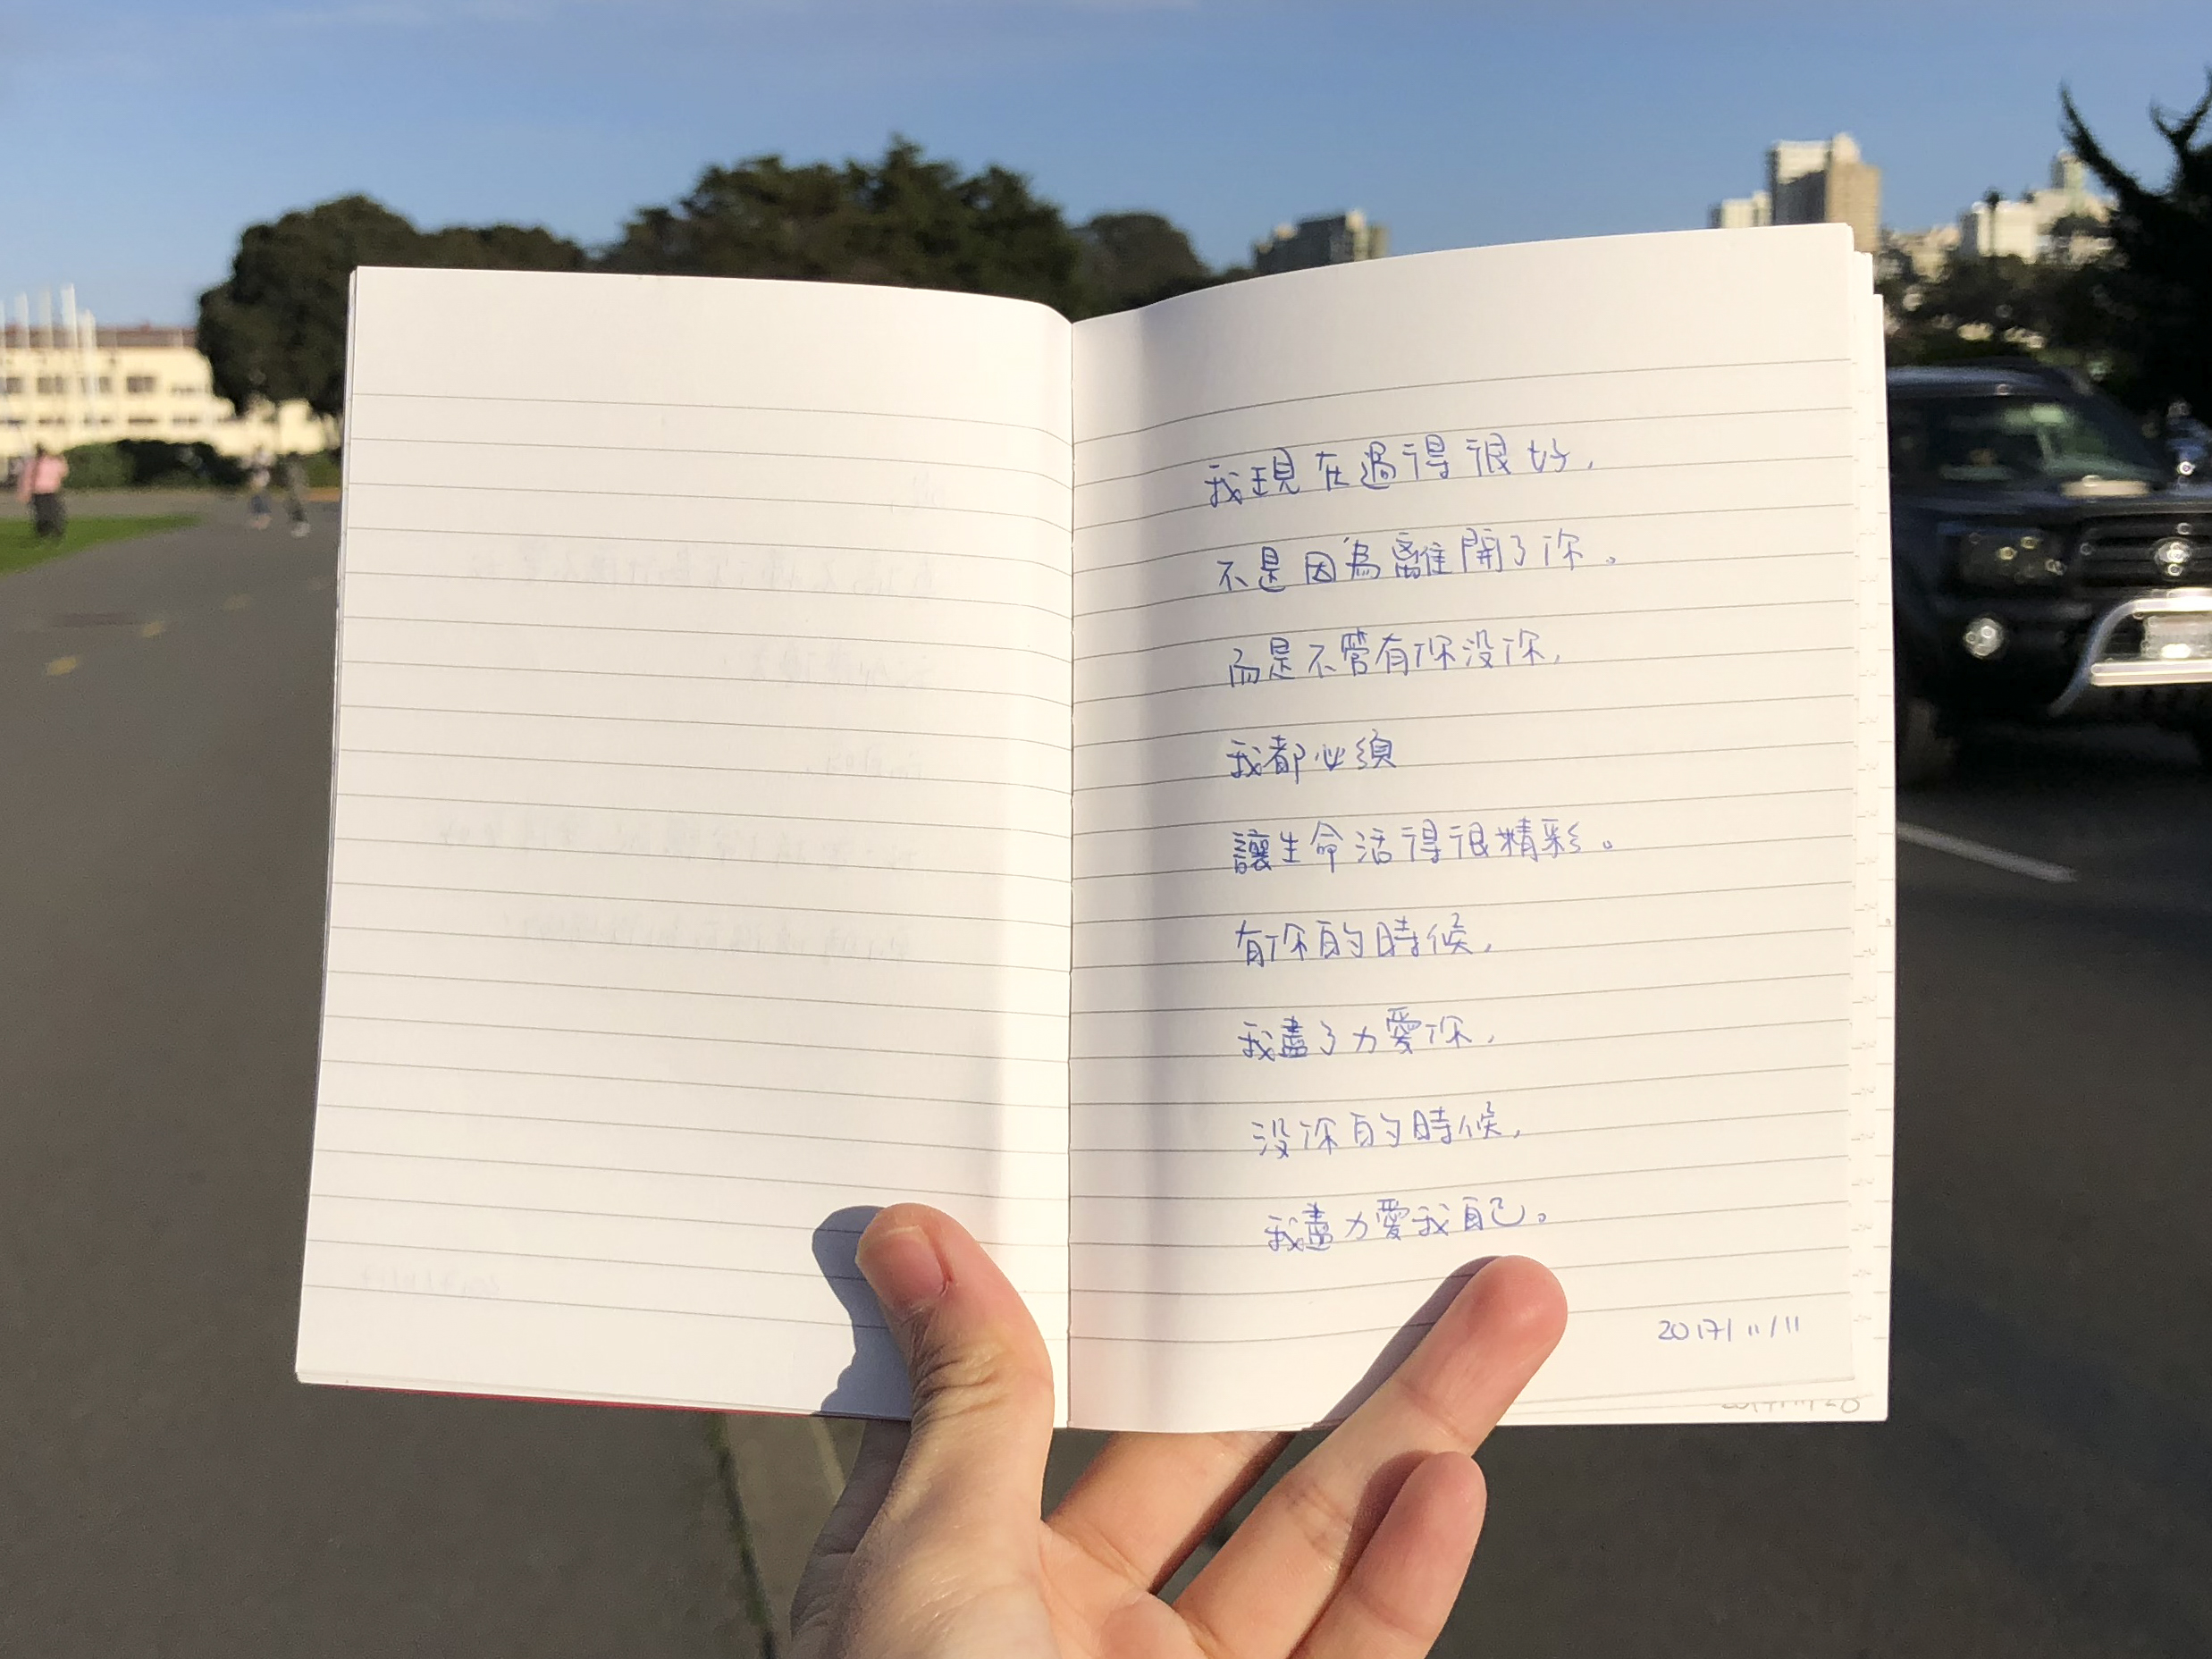 我現在過得很好,
不是因為離開了你。
而是不管有你沒你,
我都必須
讓生命活得很精彩。
有你的時候,
我盡了力愛你,
沒你的時候,
我盡力愛我自己。
2017/11/11